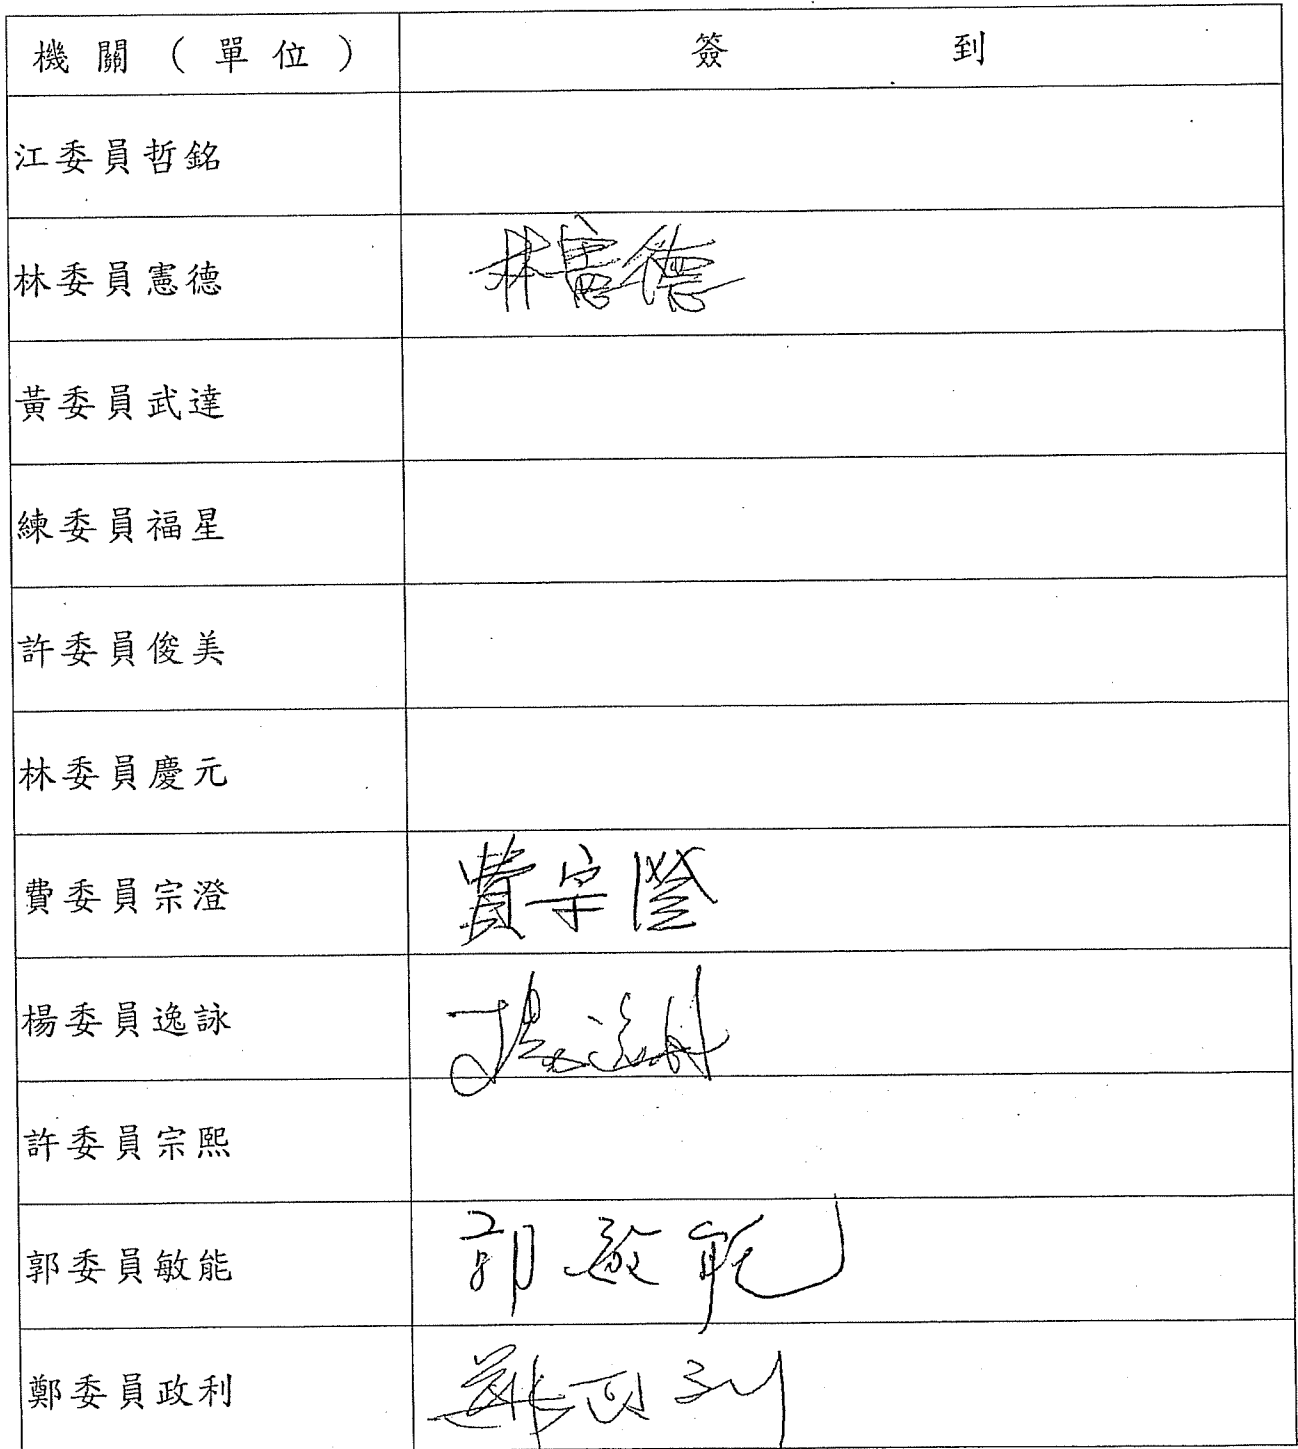 機關(單位) 簽到
江委員哲銘
林委員憲德 林憲德
黃委員武達
練委員福星
許委員俊美
林委員慶元
費委員宗澄 費宗澄
楊委員逸詠 楊逸詠
許委員宗熙
郭委員敏能 郭敏能
鄭委員政利 鄭政利